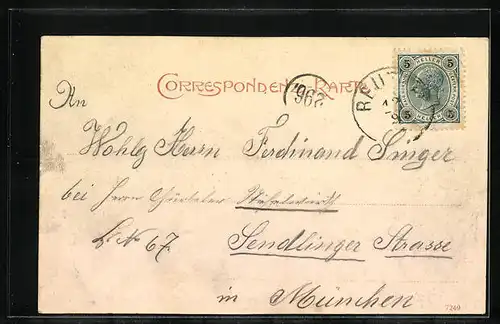 CORRESPONDENZ-KARTE
962
REUT
5 5
5 5
An
Wohlg Herrn Ferdinand Singer
bei Herrn
L. No 67. Sendlinger Strasse
in München
7260